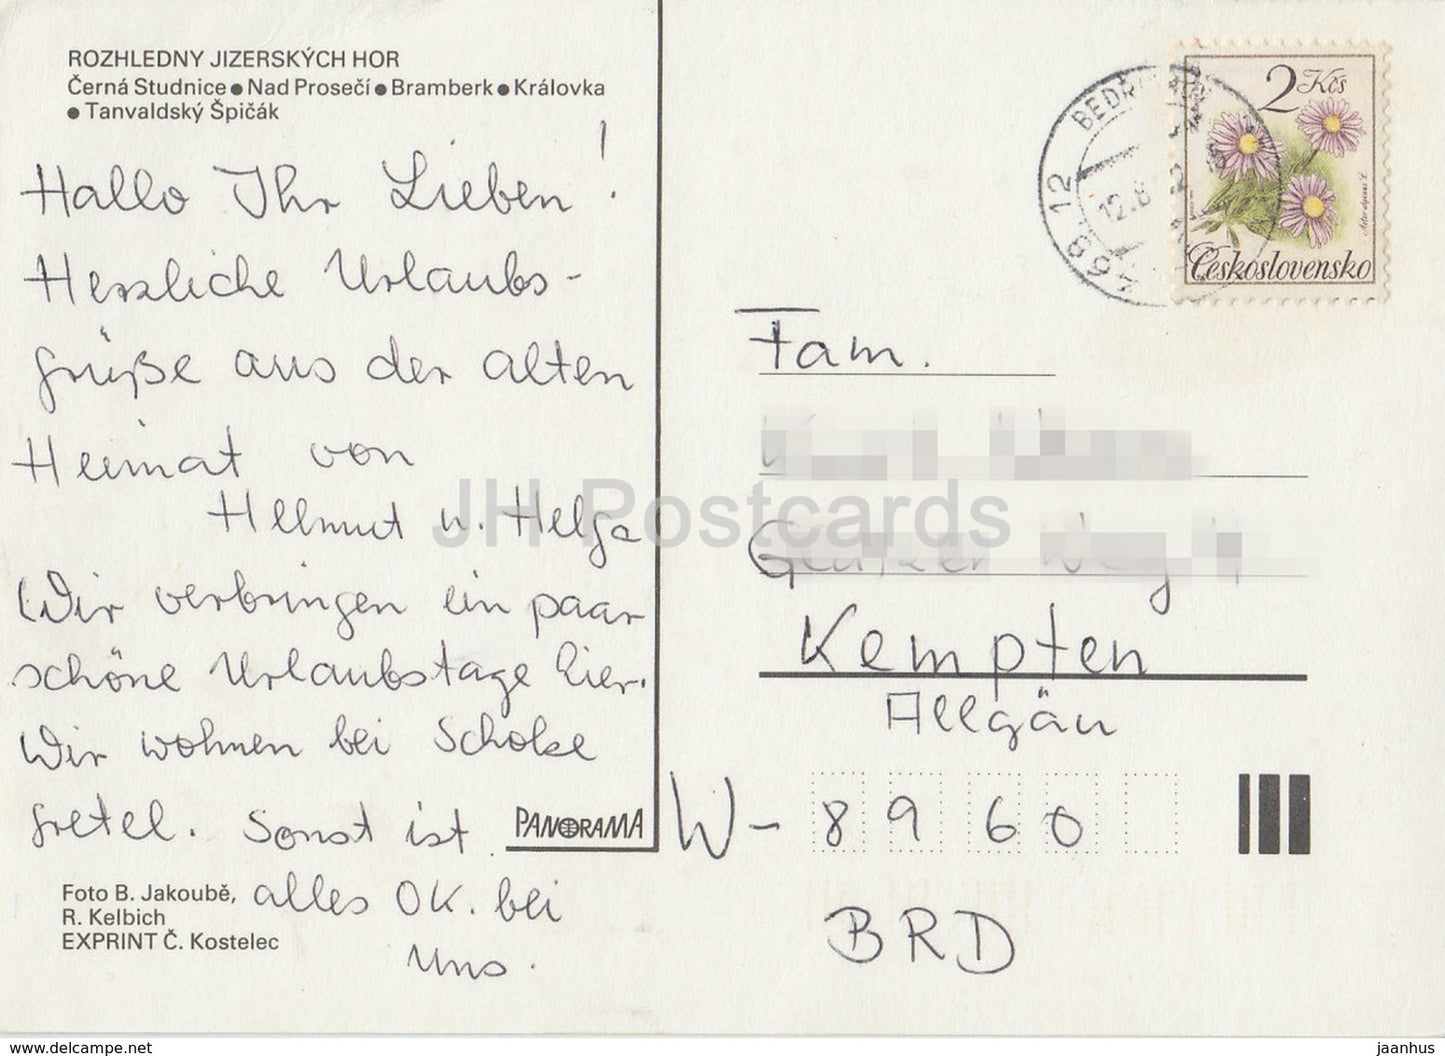 ROZHLEDNY JIZERSKÝCH HOR
Černá Studnice ● Nad Prosečí ● Bramberk ● Královka
● Tanvaldský Špičák
Hallo Ihr Lieben!
Herzliche Urlaubs-
grüße aus der alten
Heimat von
Hellmut u. Helga
Wir verbringen ein paar
schöne Urlaubstage hier.
Wir wohnen bei Scholze
Gretel. Sonst ist
alles OK. bei
Uns.
PANORAMA
Foto B. Jakoubě,
R. Kelbich
EXPRINT Č. Kostelec
2 Kčs
Československo
468 12
12.8
Fam.
Kempten
Allgäu
W- 8960
BRD
JH Postcards
www.delcampe.net
jaanhus